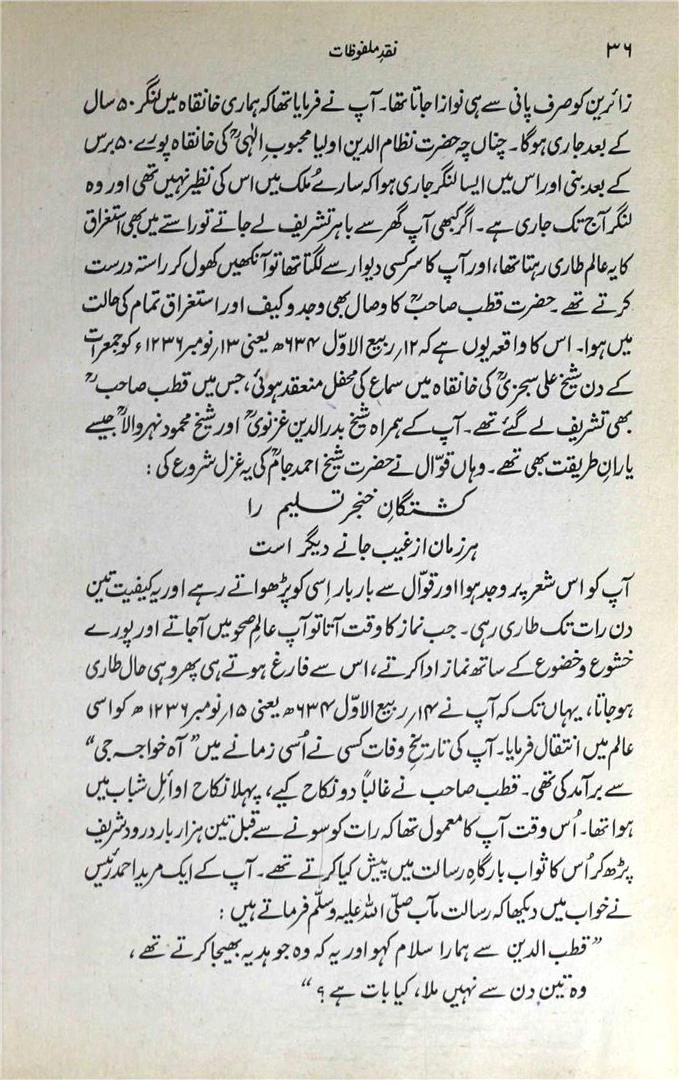 ۳۶ نقدِ ملفوظات
زائرین کو صرف پانی سے ہی نوازا جاتا تھا۔ آپ نے فرمایا تھا کہ ہماری خانقاہ میں لنگر ۵۰ سال
کے بعد جاری ہوگا۔ چناں چہ حضرت نظام الدین اولیا محبوبِ الٰہیؒ کی خانقاہ پورے ۵۰ برس
کے بعد بنی اور اس میں ایسا لنگر جاری ہوا کہ سارے مُلک میں اس کی نظیر نہیں تھی اور وہ
لنگر آج تک جاری ہے۔ اگر کبھی آپ گھر سے باہر تشریف لے جاتے تو راستے میں بھی استغراق
کا یہ عالم طاری رہتا تھا، اور آپ کا سر کسی دیوار سے لگتا تھا تو آنکھیں کھول کر راستہ درست
کرتے تھے۔ حضرت قطب صاحبؒ کا وصال بھی وجد و کیف اور استغراقِ تمام کی حالت
میں ہوا۔ اس کا واقعہ یوں ہے کہ ۱۲؍ ربیع الاوّل ۶۳۴ھ یعنی ۱۳؍ نومبر ۱۲۳۶ء کو جمعرات
کے دن شیخ علی سجزیؒ کی خانقاہ میں سماع کی محفل منعقد ہوئی، جس میں قطب صاحبؒ
بھی تشریف لے گئے تھے۔ آپ کے ہمراہ شیخ بدرالدین غزنویؒ اور شیخ محمود نہروالاؒ جیسے
یارانِ طریقت بھی تھے۔ وہاں قوّال نے حضرت شیخ احمد جامؒ کی یہ غزل شروع کی:
کشتگانِ خنجرِ تسلیم را
ہر زمان از غیب جانے دیگر است
آپ کو اس شعر پر وجد ہوا اور قوّال سے بار بار اِسی کو پڑھواتے رہے اور یہ کیفیت تین
دن رات تک طاری رہی۔ جب نماز کا وقت آتا تو آپ عالمِ صحو میں آجاتے اور پورے
خشوع و خضوع کے ساتھ نماز ادا کرتے، اس سے فارغ ہوتے ہی پھر وہی حال طاری
ہو جاتا، یہاں تک کہ آپ نے ۱۴؍ ربیع الاوّل ۶۳۴ھ یعنی ۱۵؍ نومبر ۱۲۳۶ھ کو اسی
عالم میں انتقال فرمایا۔ آپ کی تاریخِ وفات کسی نے اُسی زمانے میں ”آہ خواجہ جی“
سے برآمد کی تھی۔ قطب صاحب نے غالباً دو نکاح کیے، پہلا نکاح اوائلِ شباب میں
ہوا تھا۔ اُس وقت آپ کا معمول تھا کہ رات کو سونے سے قبل تین ہزار بار درود شریف
پڑھ کر اُس کا ثواب بارگاہِ رسالت میں پیش کیا کرتے تھے۔ آپ کے ایک مرید احمد رئیس
نے خواب میں دیکھا کہ رسالت مآب صلّی اللہ علیہ وسلّم فرماتے ہیں:
”قطب الدین سے ہمارا سلام کہو اور یہ کہ وہ جو ہدیہ بھیجا کرتے تھے،
وہ تین دن سے نہیں ملا، کیا بات ہے؟“